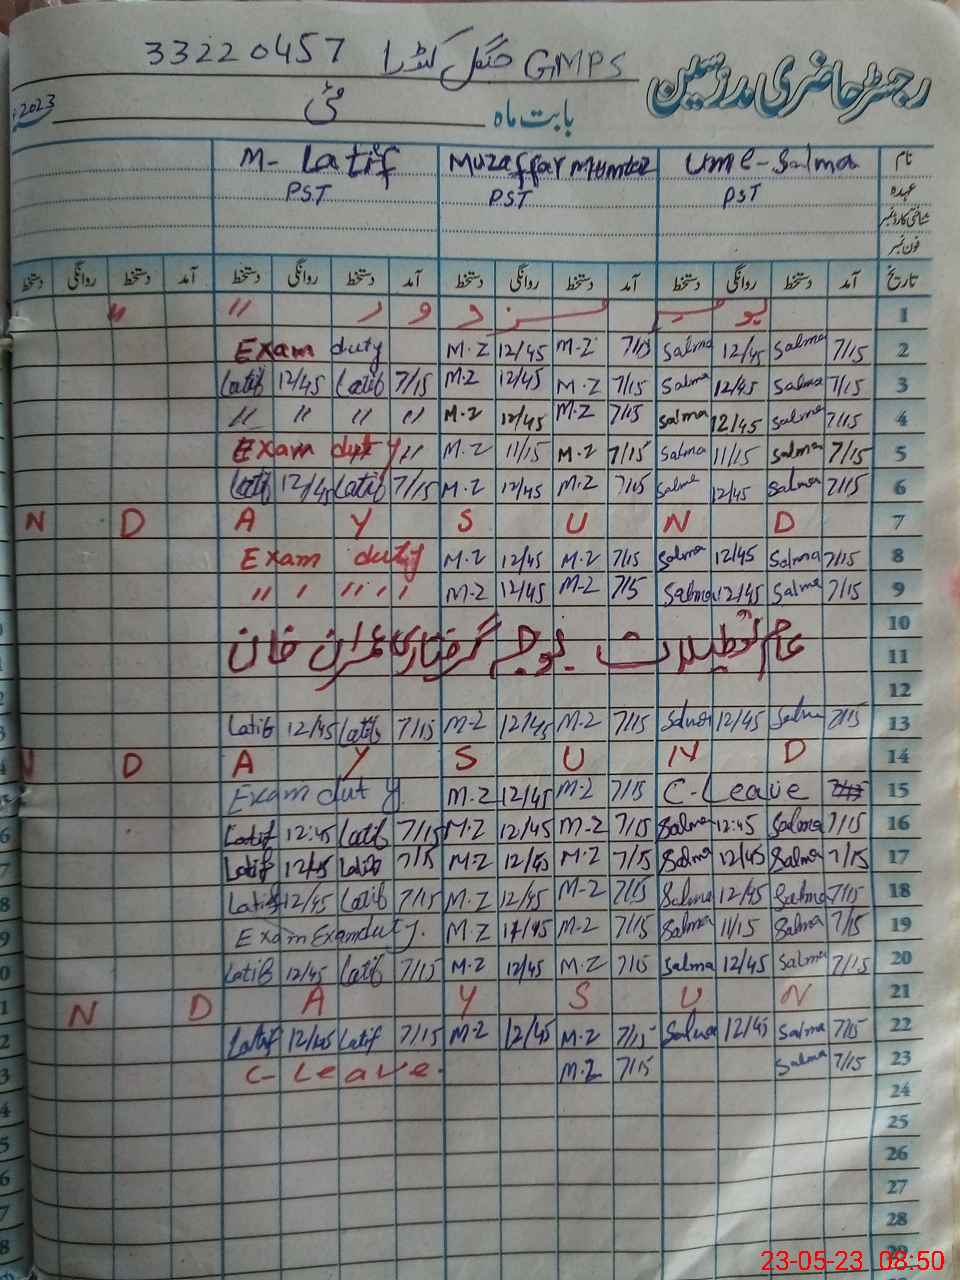 33220457 جنگل کنڈرا GMPS
رجسٹر حاضری مدرسین
بابت ماہ مئی 2023
M- Latif Muzaffar Mumtaz Ume-Salma نام
PST PST PST عہدہ
شناختی کارڈ نمبر
فون نمبر
دستخط روانگی دستخط آمد دستخط روانگی دستخط آمد دستخط روانگی دستخط آمد دستخط روانگی دستخط آمد تاریخ
" " یوم مزدور 1
Exam duty M.Z 12/45 M.Z 7/15 Salma 12/45 Salma 7/15 2
Latif 12/45 Latif 7/15 M.Z 12/45 M.Z 7/15 Salma 12/45 Salma 7/15 3
" " " " M.Z 12/45 M.Z 7/15 Salma 12/45 Salma 7/15 4
Exam duty " M.Z 11/15 M.Z 7/15 Salma 11/15 Salma 7/15 5
Latif 12/45 Latif 7/15 M.Z 12/45 M.Z 7/15 Salma 12/45 Salma 7/15 6
N D A Y S U N D 7
Exam duty M.Z 12/45 M.Z 7/15 Salma 12/45 Salma 7/15 8
" " " " M.Z 12/45 M.Z 7/15 Salma 12/45 Salma 7/15 9
10
عام تعطیلات بوجہ گرفتاری عمران خان 11
12
Latif 12/45 Latif 7/15 M.Z 12/45 M.Z 7/15 Salma 12/45 Salma 7/15 13
U D A Y S U N D 14
Exam duty M.Z 12/45 M.Z 7/15 C-Leave 15
Latif 12:45 Latif 7/15 M.Z 12/45 M.Z 7/15 Salma 12:45 Salma 7/15 16
Latif 12/45 Latif 7/15 M.Z 12/45 M.Z 7/15 Salma 12/45 Salma 7/15 17
Latif 12/45 Latif 7/15 M.Z 12/45 M.Z 7/15 Salma 12/45 Salma 7/15 18
Exam Exam duty. M.Z M.Z 7/15 Salma 11/15 Salma 7/15 19
Latif 12/45 Latif 7/15 M.Z 12/45 M.Z 7/15 Salma 12/45 Salma 7/15 20
N D A Y S U N 21
Latif 12/45 Latif 7/15 M.Z 12/45 M.Z 7/15 Salma 12/45 Salma 7/15 22
C-Leave. M.Z 7/15 Salma 7/15 23
24
25
26
27
28
29
23-05-23 08:50